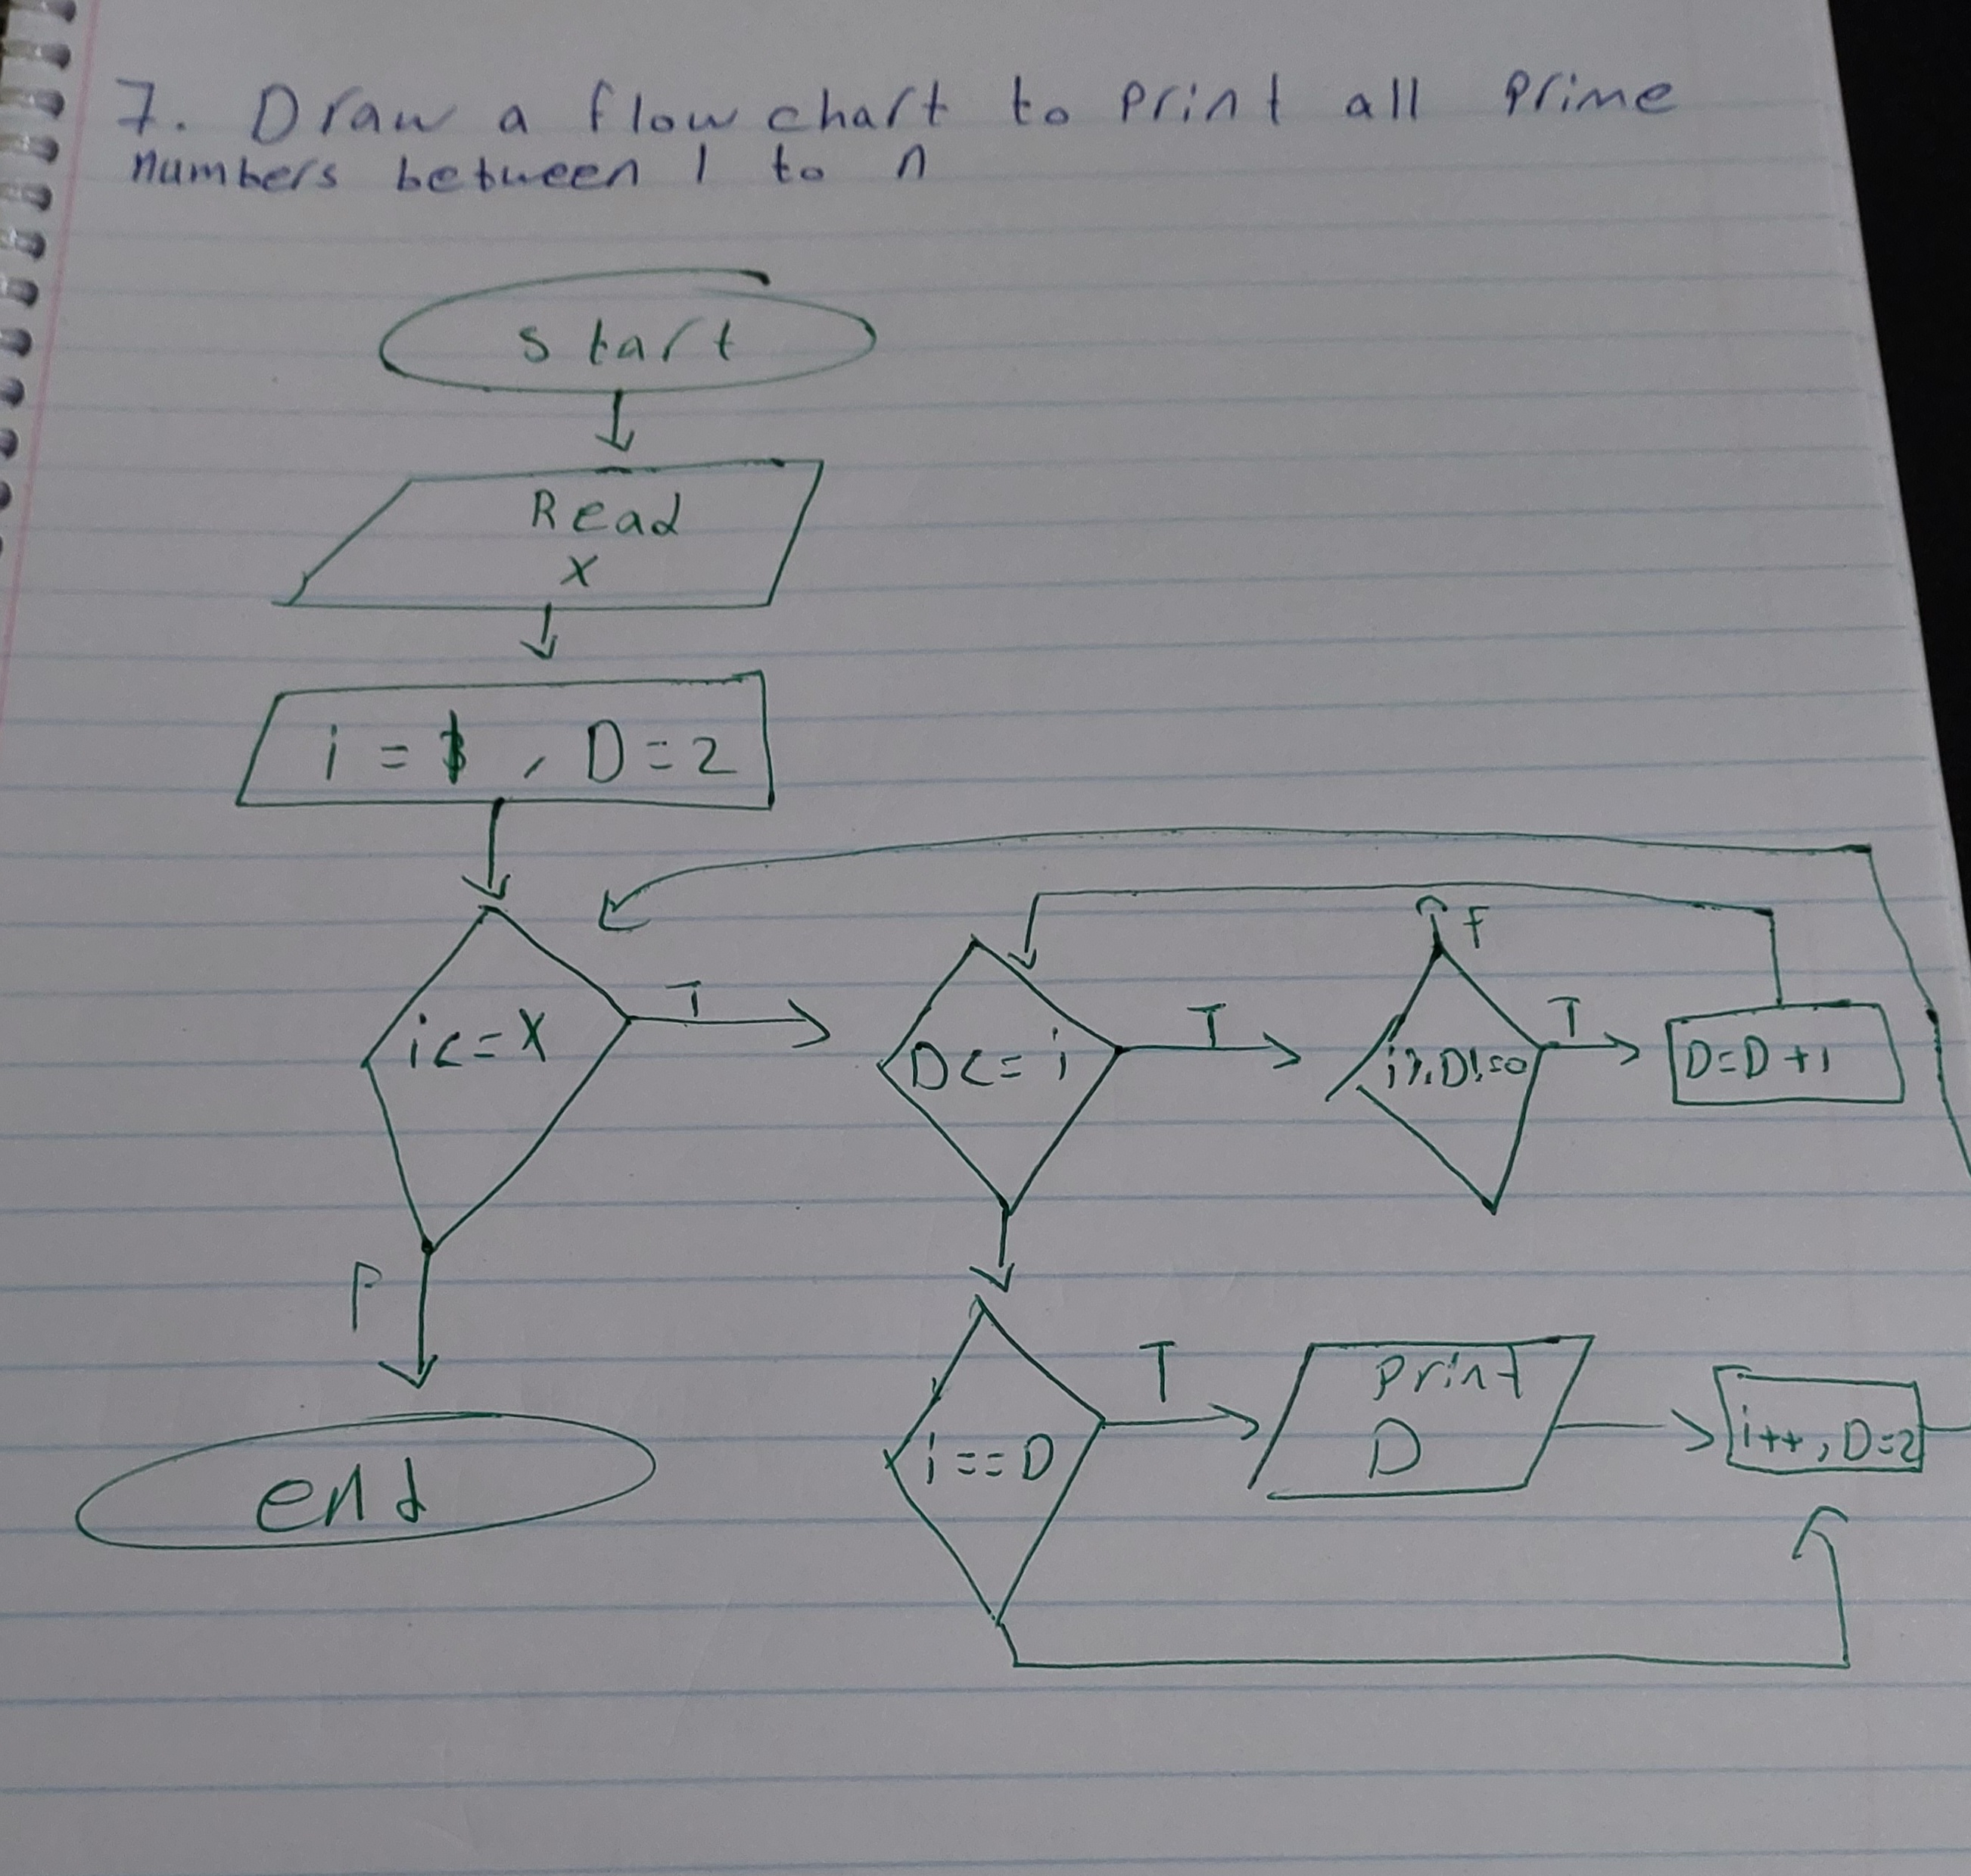 7. Draw a flow chart to print all prime
numbers between 1 to n
start
Read
x
i = , D=2
i<=X
T
D<=i
T
i%D!=0
F
T
D=D+1
F
end
i==D
T
print
D
i++, D=2